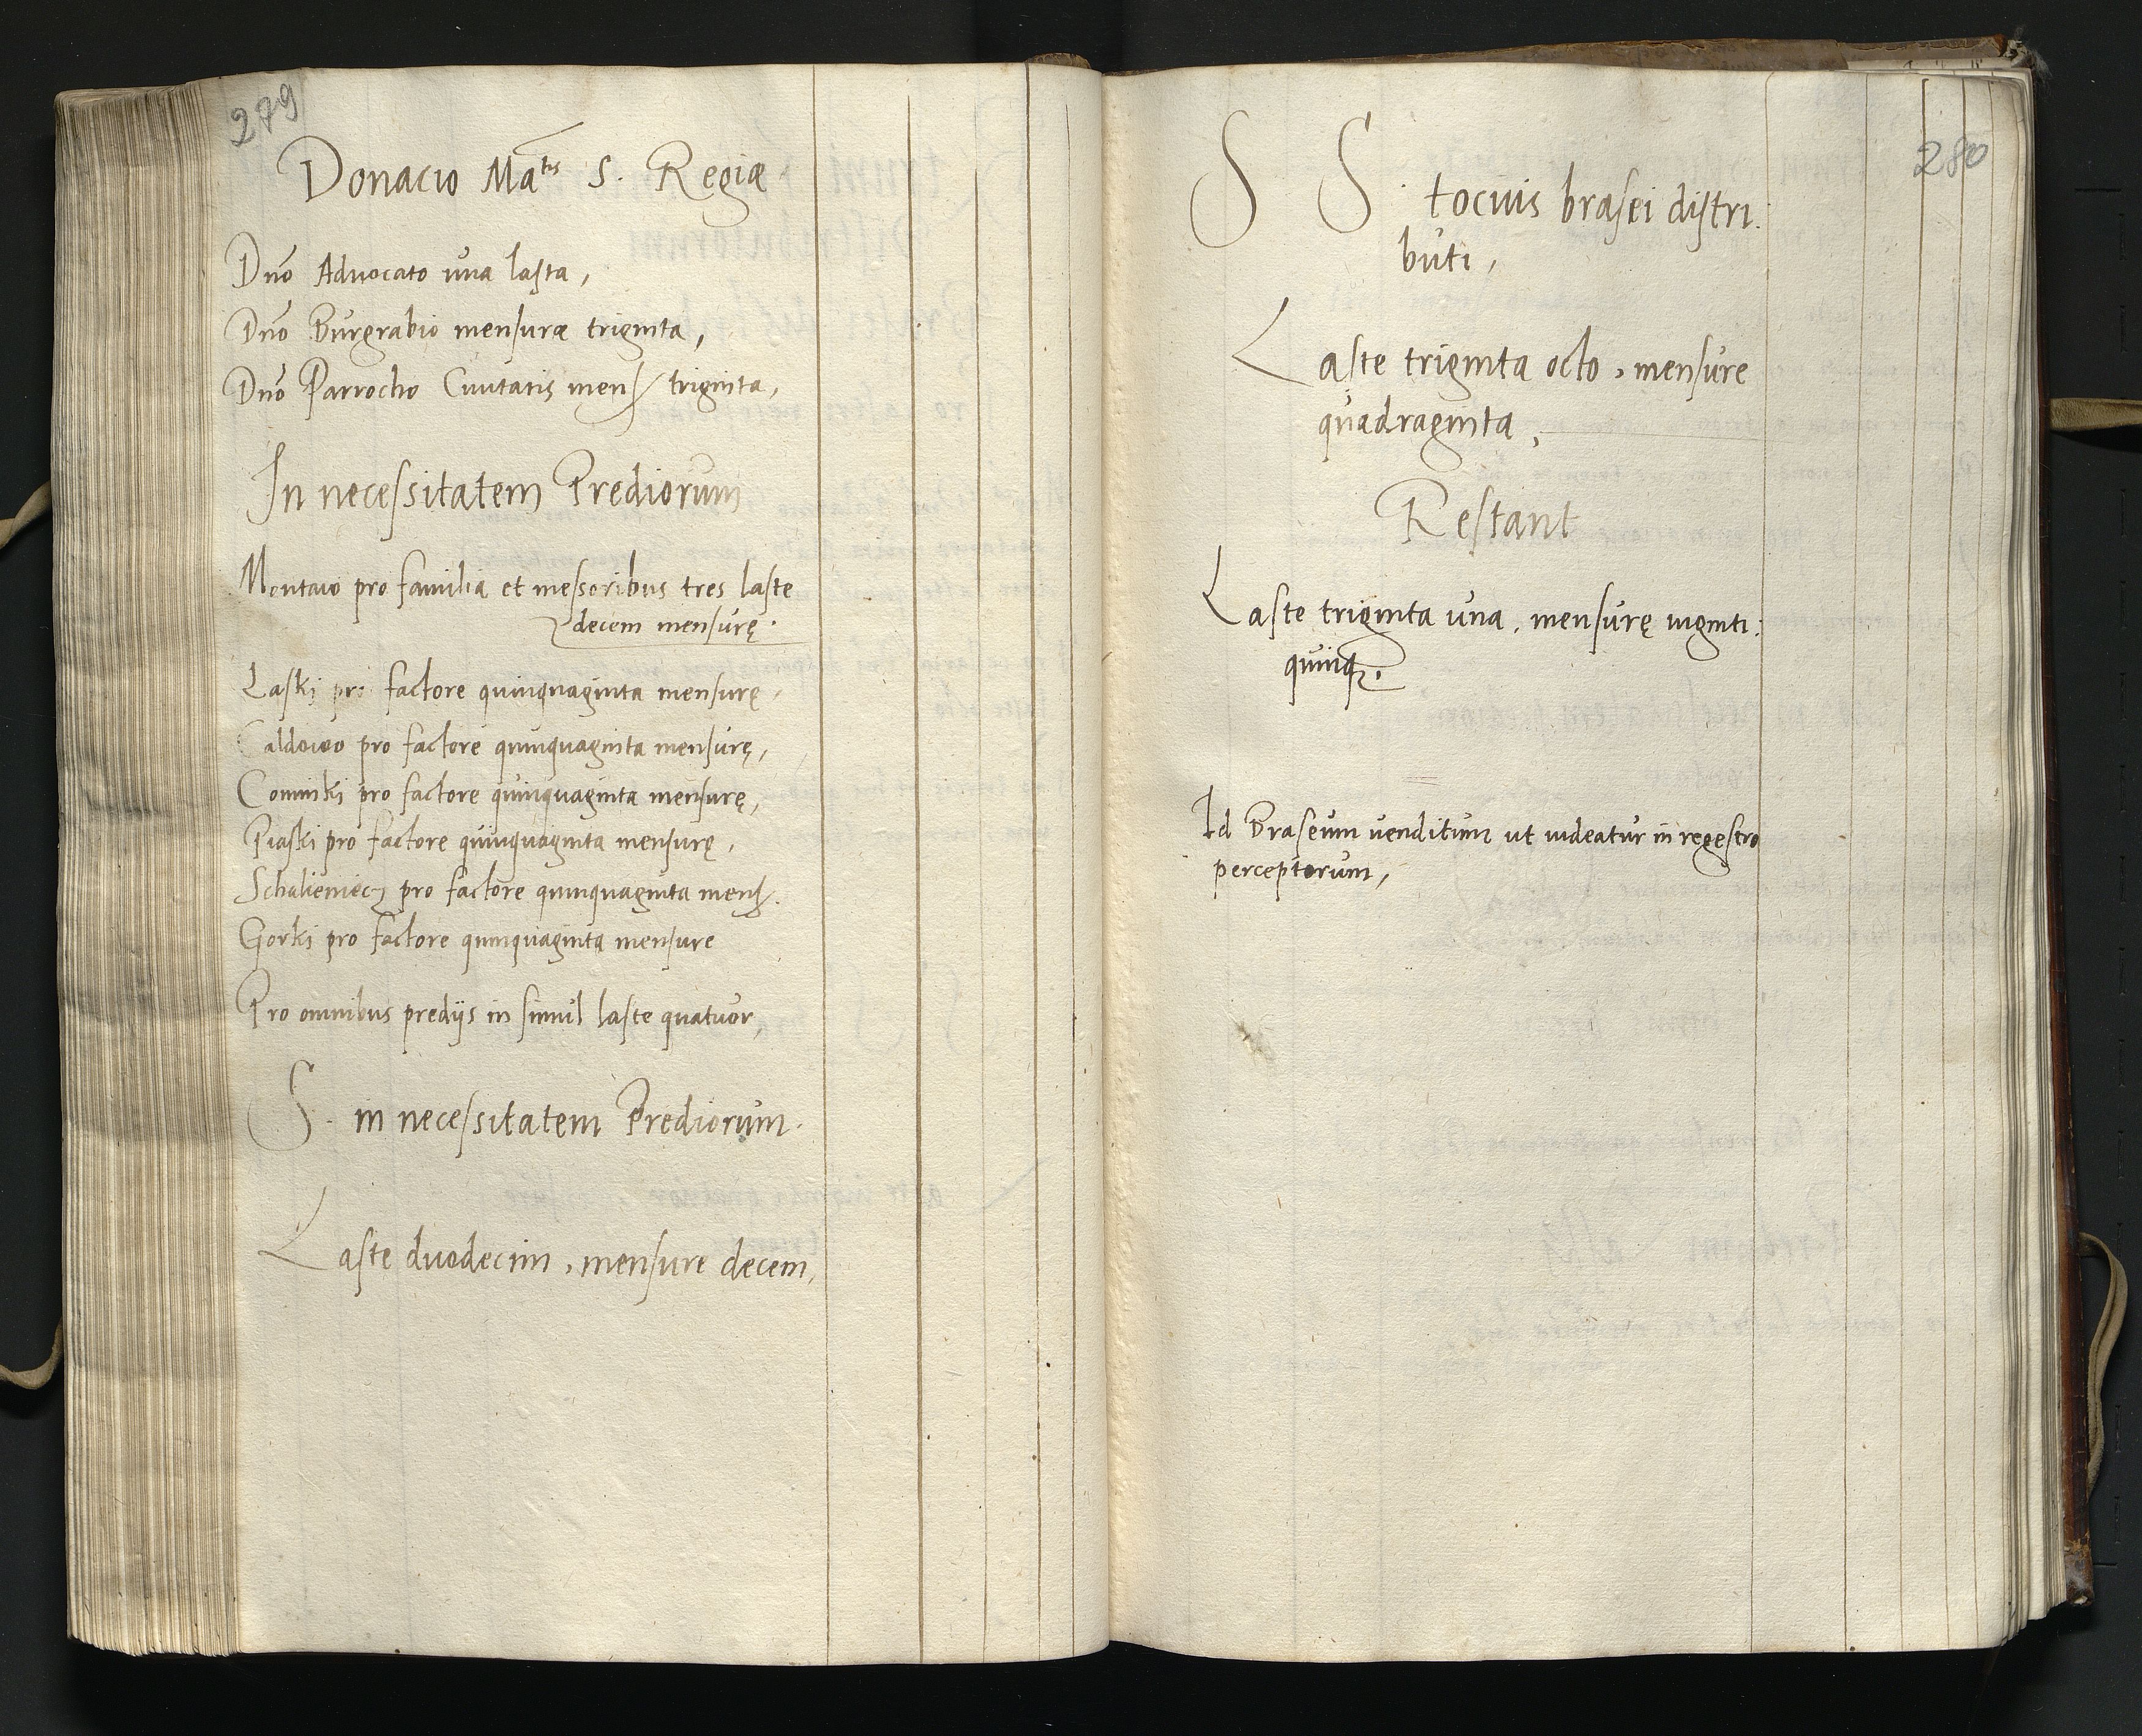 279
Donacio Ma^tis S. Regiæ
Dnō Advocato una lasta,
Dnō Burgrabio mensuræ triginta,
Dnō Parrocho Civitatis mens triginta,
In necessitatem Prediorum
Montaio pro familia et messoribus tres laste
decem mensurę.
Laski pro factore quinquaginta mensurę,
Caldowo pro factore quinquaginta mensurę,
Cominki pro factore quinquaginta mensurę,
Piaski pro factore quinquaginta mensurę,
Schalieniecz pro factore quinquaginta mens.
Gorki pro factore quinquaginta mensure
Pro omnibus predijs in simul laste quatuor,
S. in necessitatem Prediorum.
Laste duodecim, mensure decem,
280
S S. tocius brasei distri:
buti,
Laste triginta octo, mensure
quadraginta,
Restant
Laste triginta una, mensurę viginti:
quinq.
Id Braseum venditum ut videatur in regestro
perceptorum,